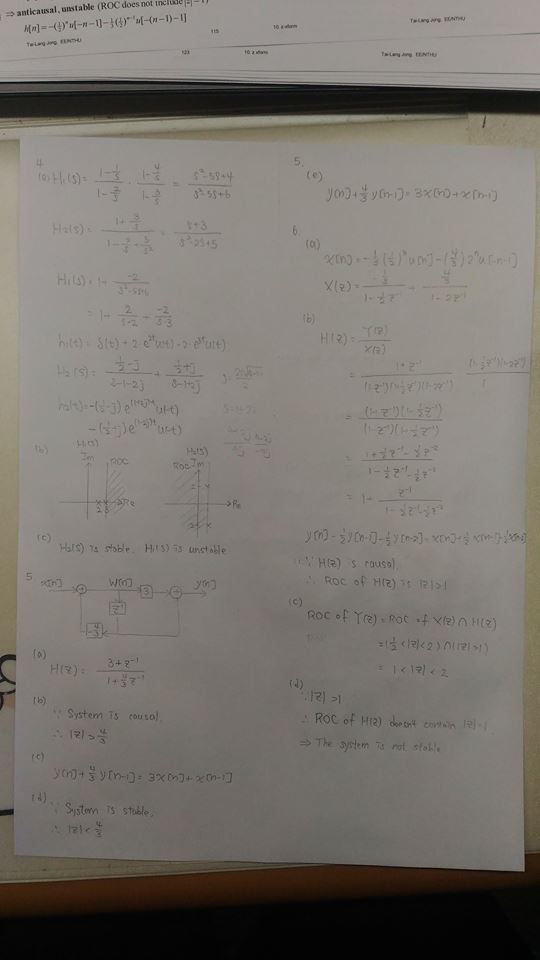 ⇒ anticausal, unstable (ROC does not include |z|=1)
h[n]=-(½)ⁿu[-n-1]-⅓(½)ⁿ⁻¹u[-(n-1)-1]
Tai-Lang Jong, EE/NTHU
115
10. z xform
Tai-Lang Jong, EE/NTHU
Tai-Lang Jong, EE/NTHU
123
10. z xform
Tai-Lang Jong, EE/NTHU
4.
(a) H₁(s) = (1-1/s)/(1-2/s) · (1-4/s)/(1-3/s) = (s²-5s+4)/(s²-5s+6)
H₂(s) = (1+3/s)/(1-2/s+5/s²) = (s+3)/(s²-2s+5)
H₁(s) = 1+ -2/(s²-5s+6)
= 1+ 2/(s-2) + -2/(s-3)
h₁(t) = δ(t) + 2·e²ᵗu(t) - 2·e³ᵗu(t)
H₂(s) = (½-j)/(s-1-2j) + (½+j)/(s-1+2j)
h₂(t) = -(½-j)e^(1+2j)t u(-t)
-(½+j)e^(1-2j)t u(-t)
(b)
H₁(s)
Im
ROC
2
3
Re
H₂(s)
ROC
Im
2
Re
(c)
H₂(s) is stable. H₁(s) is unstable
5.
x[n]
+
W[n]
3
+
y[n]
z⁻¹
-4/3
(a)
H(z) = (3+z⁻¹)/(1+4/3 z⁻¹)
(b)
∵ System is causal.
∴ |z|>4/3
(c)
y[n]+4/3 y[n-1] = 3x[n]+x[n-1]
(d)
∵ System is stable.
∴ |z|<4/3
5.
(e)
y[n]+4/3 y[n-1] = 3x[n]+x[n-1]
6.
(a)
x[n] = -⅓(½)ⁿu[n]-(4/3)2ⁿu[-n-1]
X(z) = (-⅓)/(1-½z⁻¹) + (4/3)/(1-2z⁻¹)
(b)
H(z) = Y(z)/X(z)
= (1+z⁻¹)/((1-z⁻¹)(1+½z⁻¹)(1-2z⁻¹)) (1-½z⁻¹)(1-2z⁻¹)/1
= (1+z⁻¹)(1-½z⁻¹)/((1-z⁻¹)(1+½z⁻¹))
= (1+½z⁻¹-½z⁻²)/(1-½z⁻¹-½z⁻²)
= 1+ z⁻¹/(1-½z⁻¹-½z⁻²)
y[n]-½y[n-1]-½y[n-2] = x[n]+½x[n-1]-½x[n-2]
∵ H(z) is causal.
∴ ROC of H(z) is |z|>1
(c)
ROC of Y(z) = ROC of X(z) ∩ H(z)
= (½<|z|<2) ∩ (|z|>1)
= 1<|z|<2
(d)
∵ |z|>1
∴ ROC of H(z) doesn't contain |z|=1.
⇒ The system is not stable